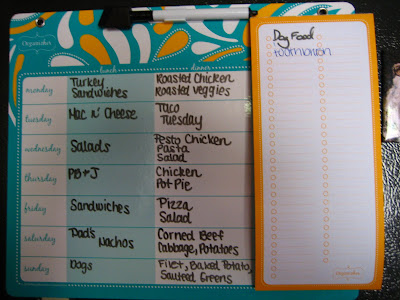 Organizher
lunch
dinner
monday
Turkey
Sandwiches
Roasted Chicken
Roasted veggies
tuesday
Mac n' Cheese
Taco
Tuesday
wednesday
Salads
Pesto Chicken
Pasta
Salad
thursday
PB & J
Chicken
Pot Pie
friday
Sandwiches
Pizza
Salad
saturday
Dad's
Nachos
Corned Beef
Cabbage, Potatoes
sunday
Dogs
Filet, Baked Potato,
Sauteed Greens
Dog Food
toothbrush